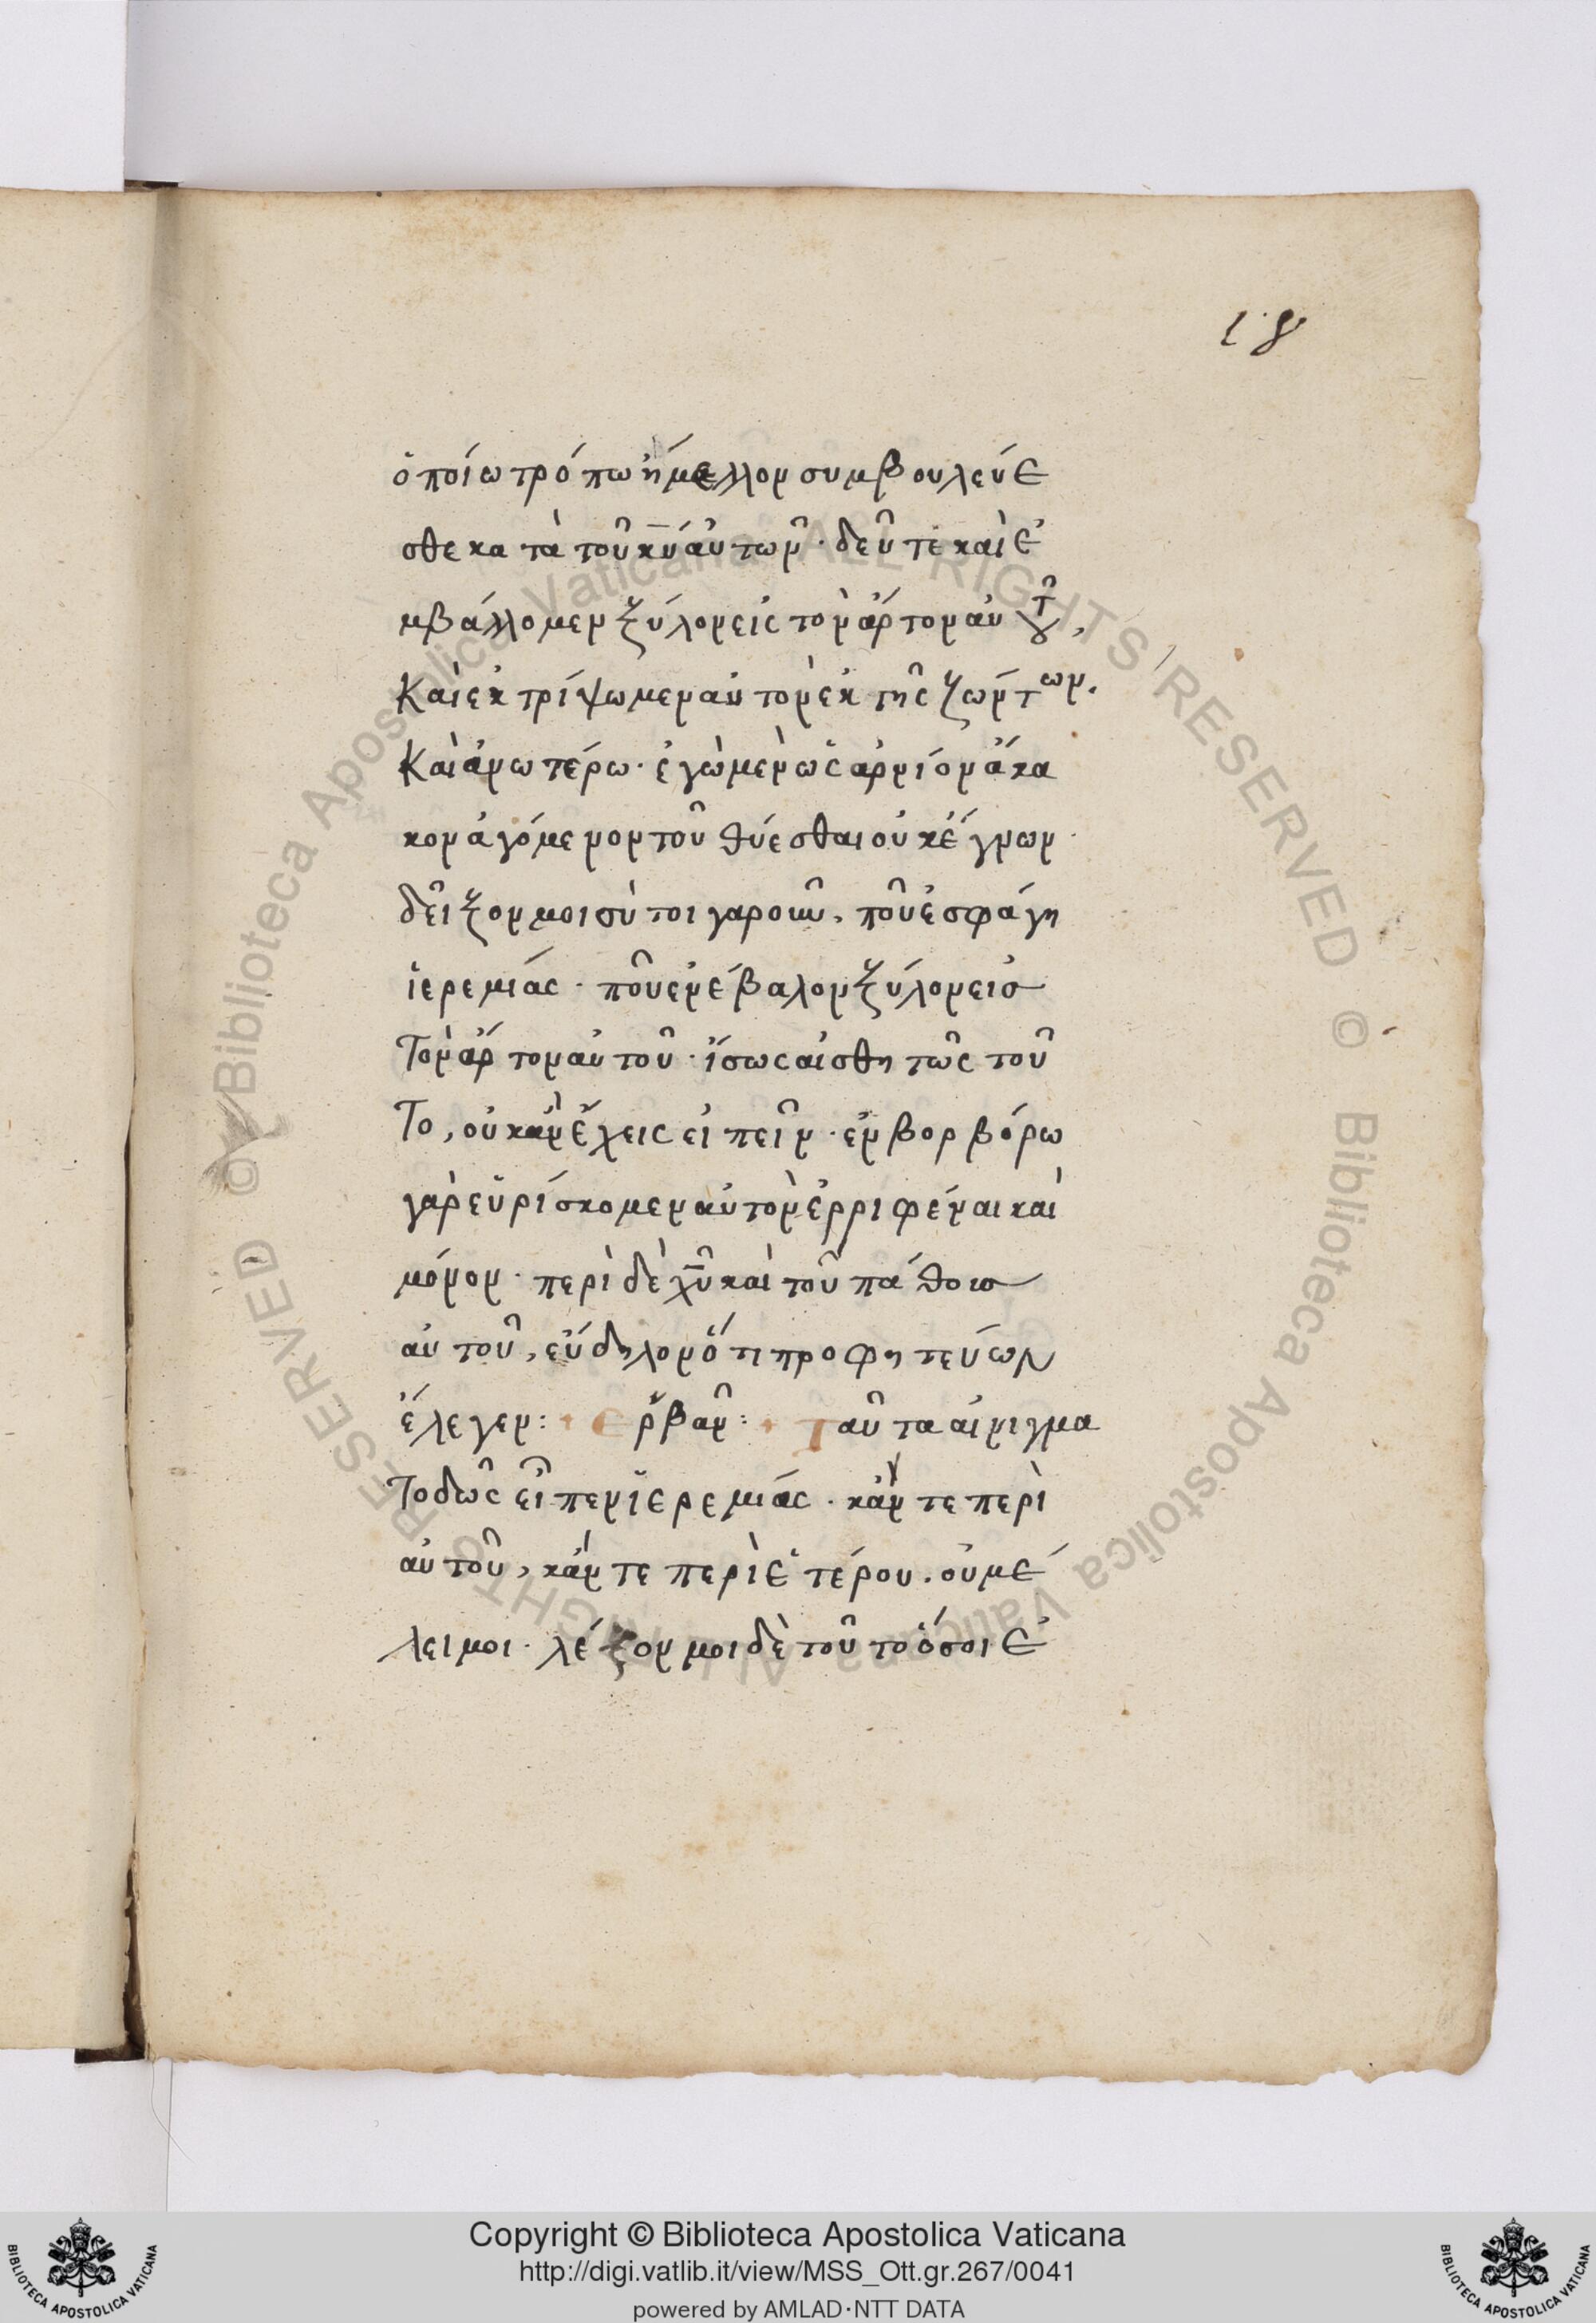 18
ὁποίω τρόπω ἠμελλον συμβουλεύε
σθε κατὰ τοῦ κ̅υ̅ αὐτῶν · δεῦτε καὶ ἐ
μβάλλομεν ξύλον εἰς τὸν ἄρτον αὐτοῦ,
Καὶ εκτρίψωμεν αὐτὸν ἐκ γῆς ζώντων.
Καὶ ἀνωτέρω · ἐγὼ μὲν ὡς ἀρνίον ἄκα
κον ἀγόμενον τοῦ θύεσθαι οὐκ ἔγνων ·
δεῖξον μοι σὺ τοιγαροῦν, ποῦ ἐσφάγη
ἱερεμίας · ποῦ ενέβαλον ξύλον εἰσ
Τὸν ἄρτον αὐτοῦ · ἴσως αἰσθητῶς τοῦ
Το, οὐκ ἂν ἔχεις εἰπεῖν · ἐν βορβόρω
γὰρ εὑρίσκομεν αὐτὸν ἐρριφέναι καὶ
μόνον · περὶ δὲ χ̅υ̅ καὶ τοῦ πάθουσ
αὐτοῦ, εὔδηλον ὅτι προφητεύων
ἔλεγεν : Ερβαν : Ταῦτα αἰνιγμα
Τοδῶς εἶπεν ἱερεμίας · κἄν τε περὶ
αὐτοῦ, κἄν τε περὶ ἑτέρου. οὐ μέ
λει μοι · λέξον μοι δὲ τοῦτο ὅσοι ἐ
Copyright © Biblioteca Apostolica Vaticana
http://digi.vatlib.it/view/MSS_Ott.gr.267/0041
powered by AMLAD·NTT DATA
BIBLIOTECA APOSTOLICA VATICANA
BIBLIOTECA APOSTOLICA VATICANA
© Biblioteca Apostolica Vaticana ALL RIGHTS RESERVED © Biblioteca Apostolica Vaticana ALL RIGHTS RESERVED